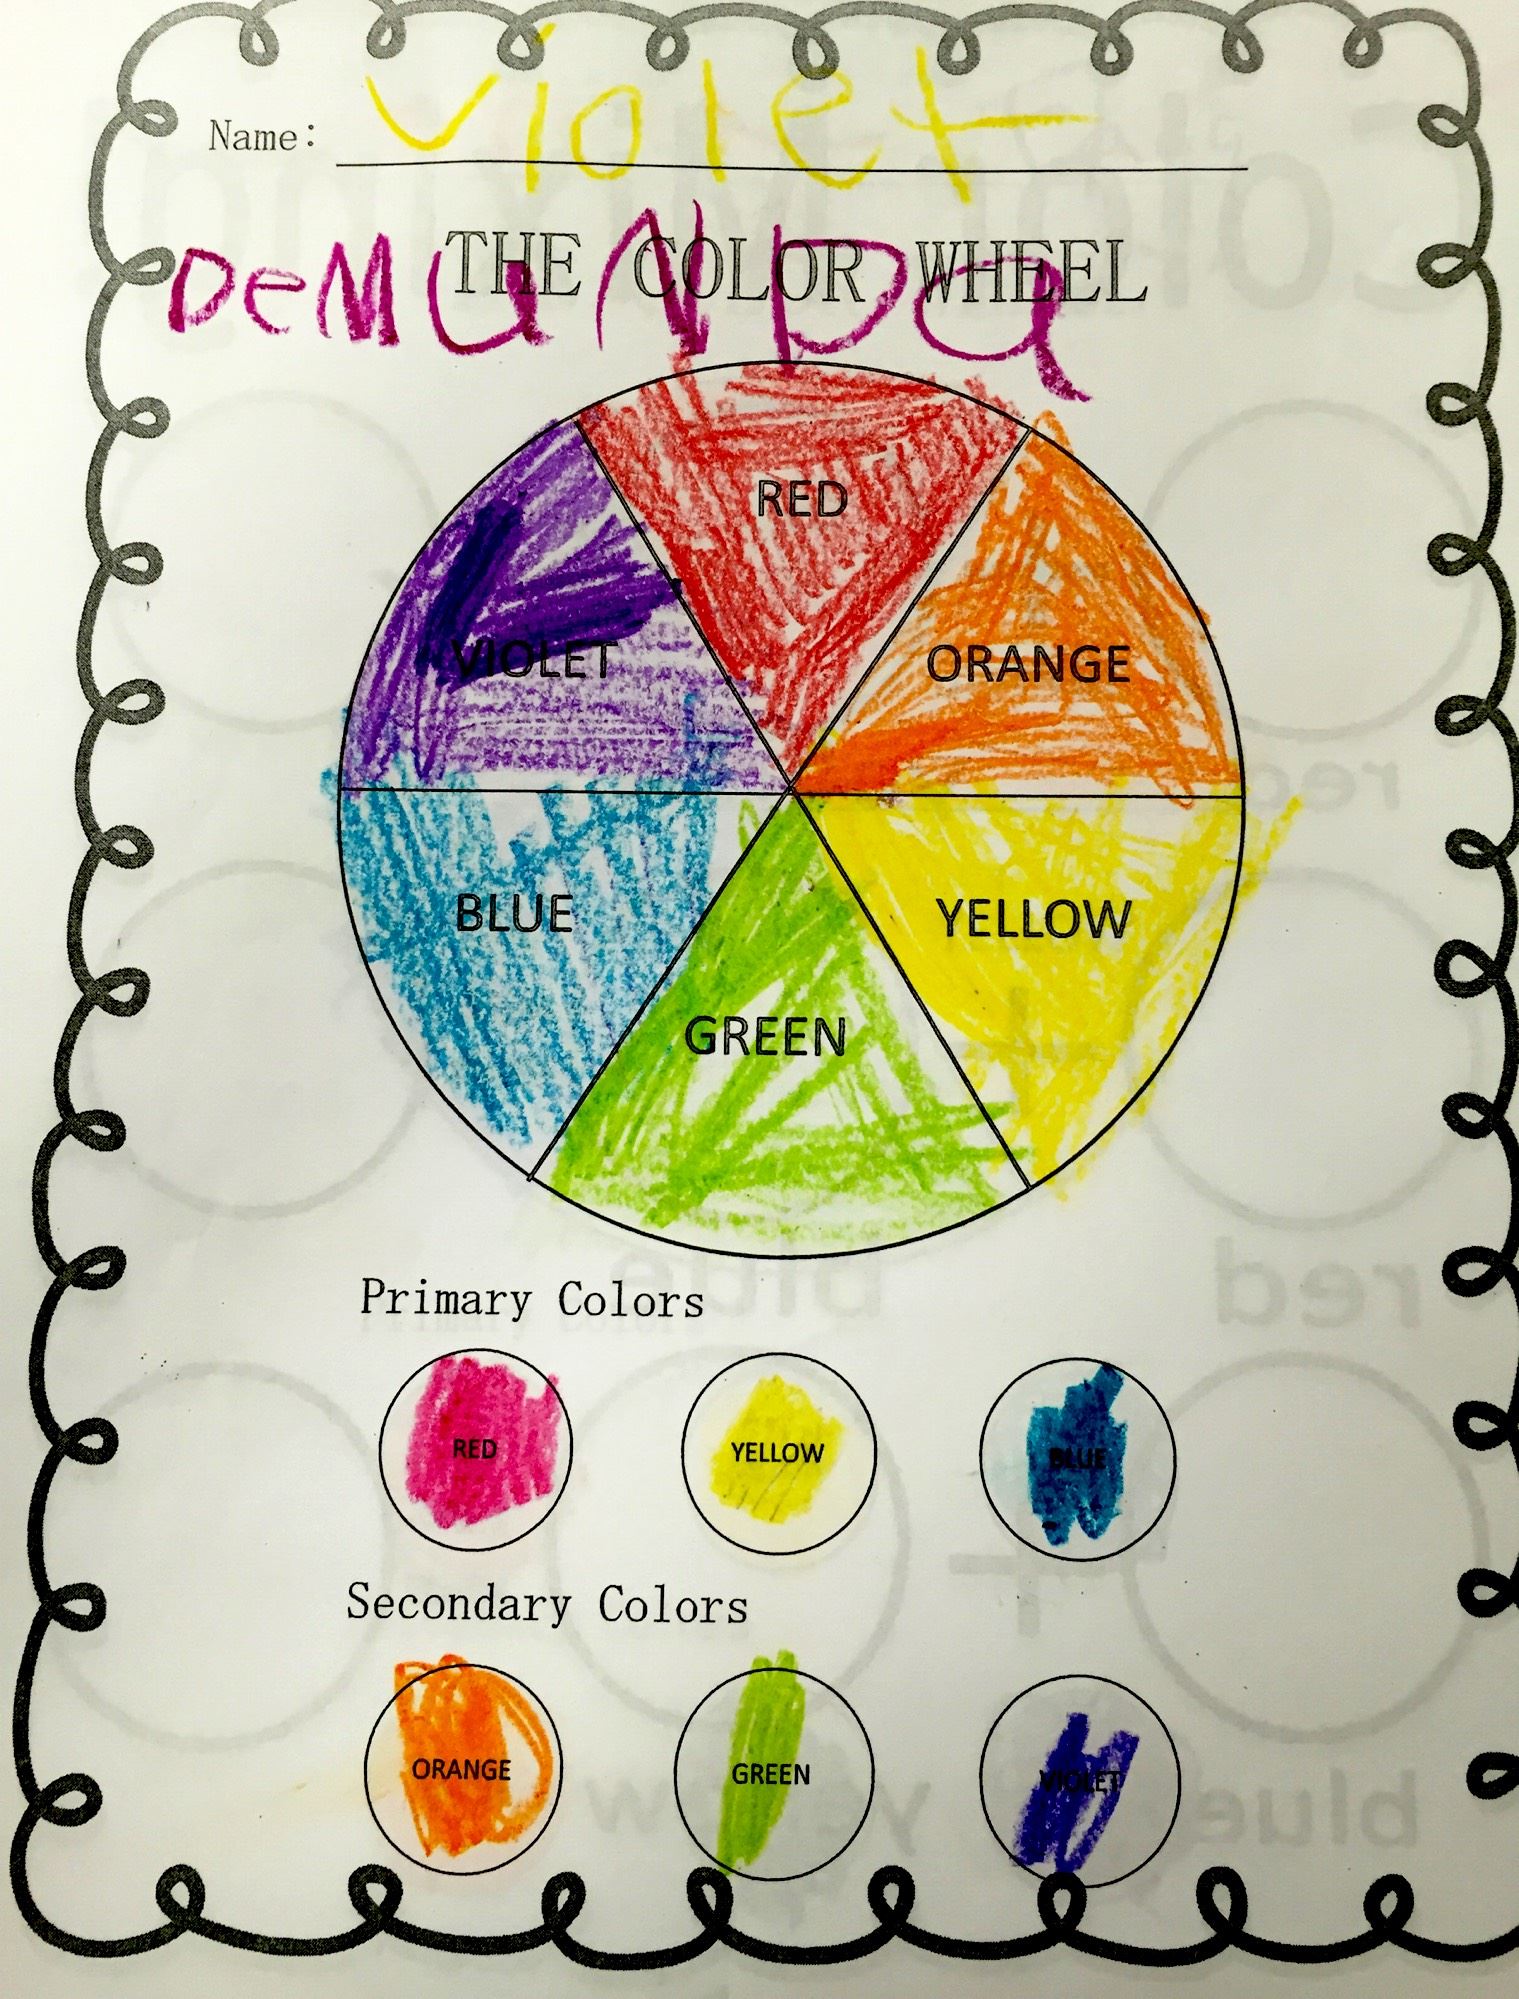 Name: Violet
DeMuNDa
THE COLOR WHEEL
RED
VIOLET ORANGE
BLUE YELLOW
GREEN
Primary Colors
RED YELLOW BLUE
Secondary Colors
ORANGE GREEN VIOLET
red
blue red
blue